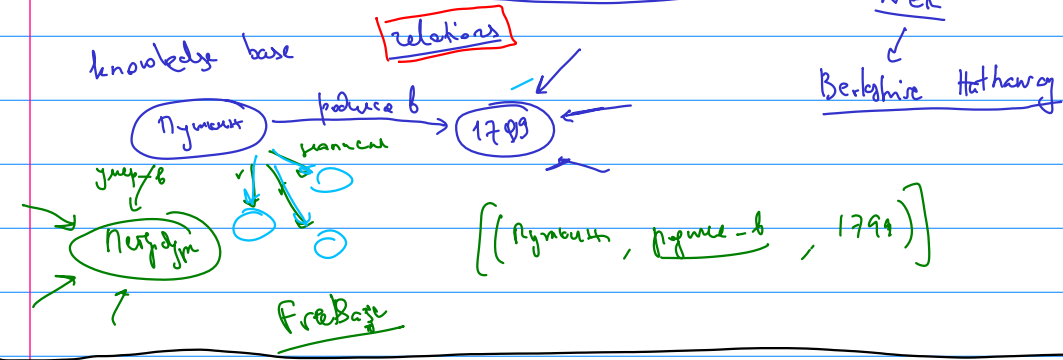 NER
relations
knowledge base
Berkshire Hathaway
Пушкин
родился в
1799
написал
умер-в
Петербург
[(Пушкин, родился-в, 1799)]
FreeBase